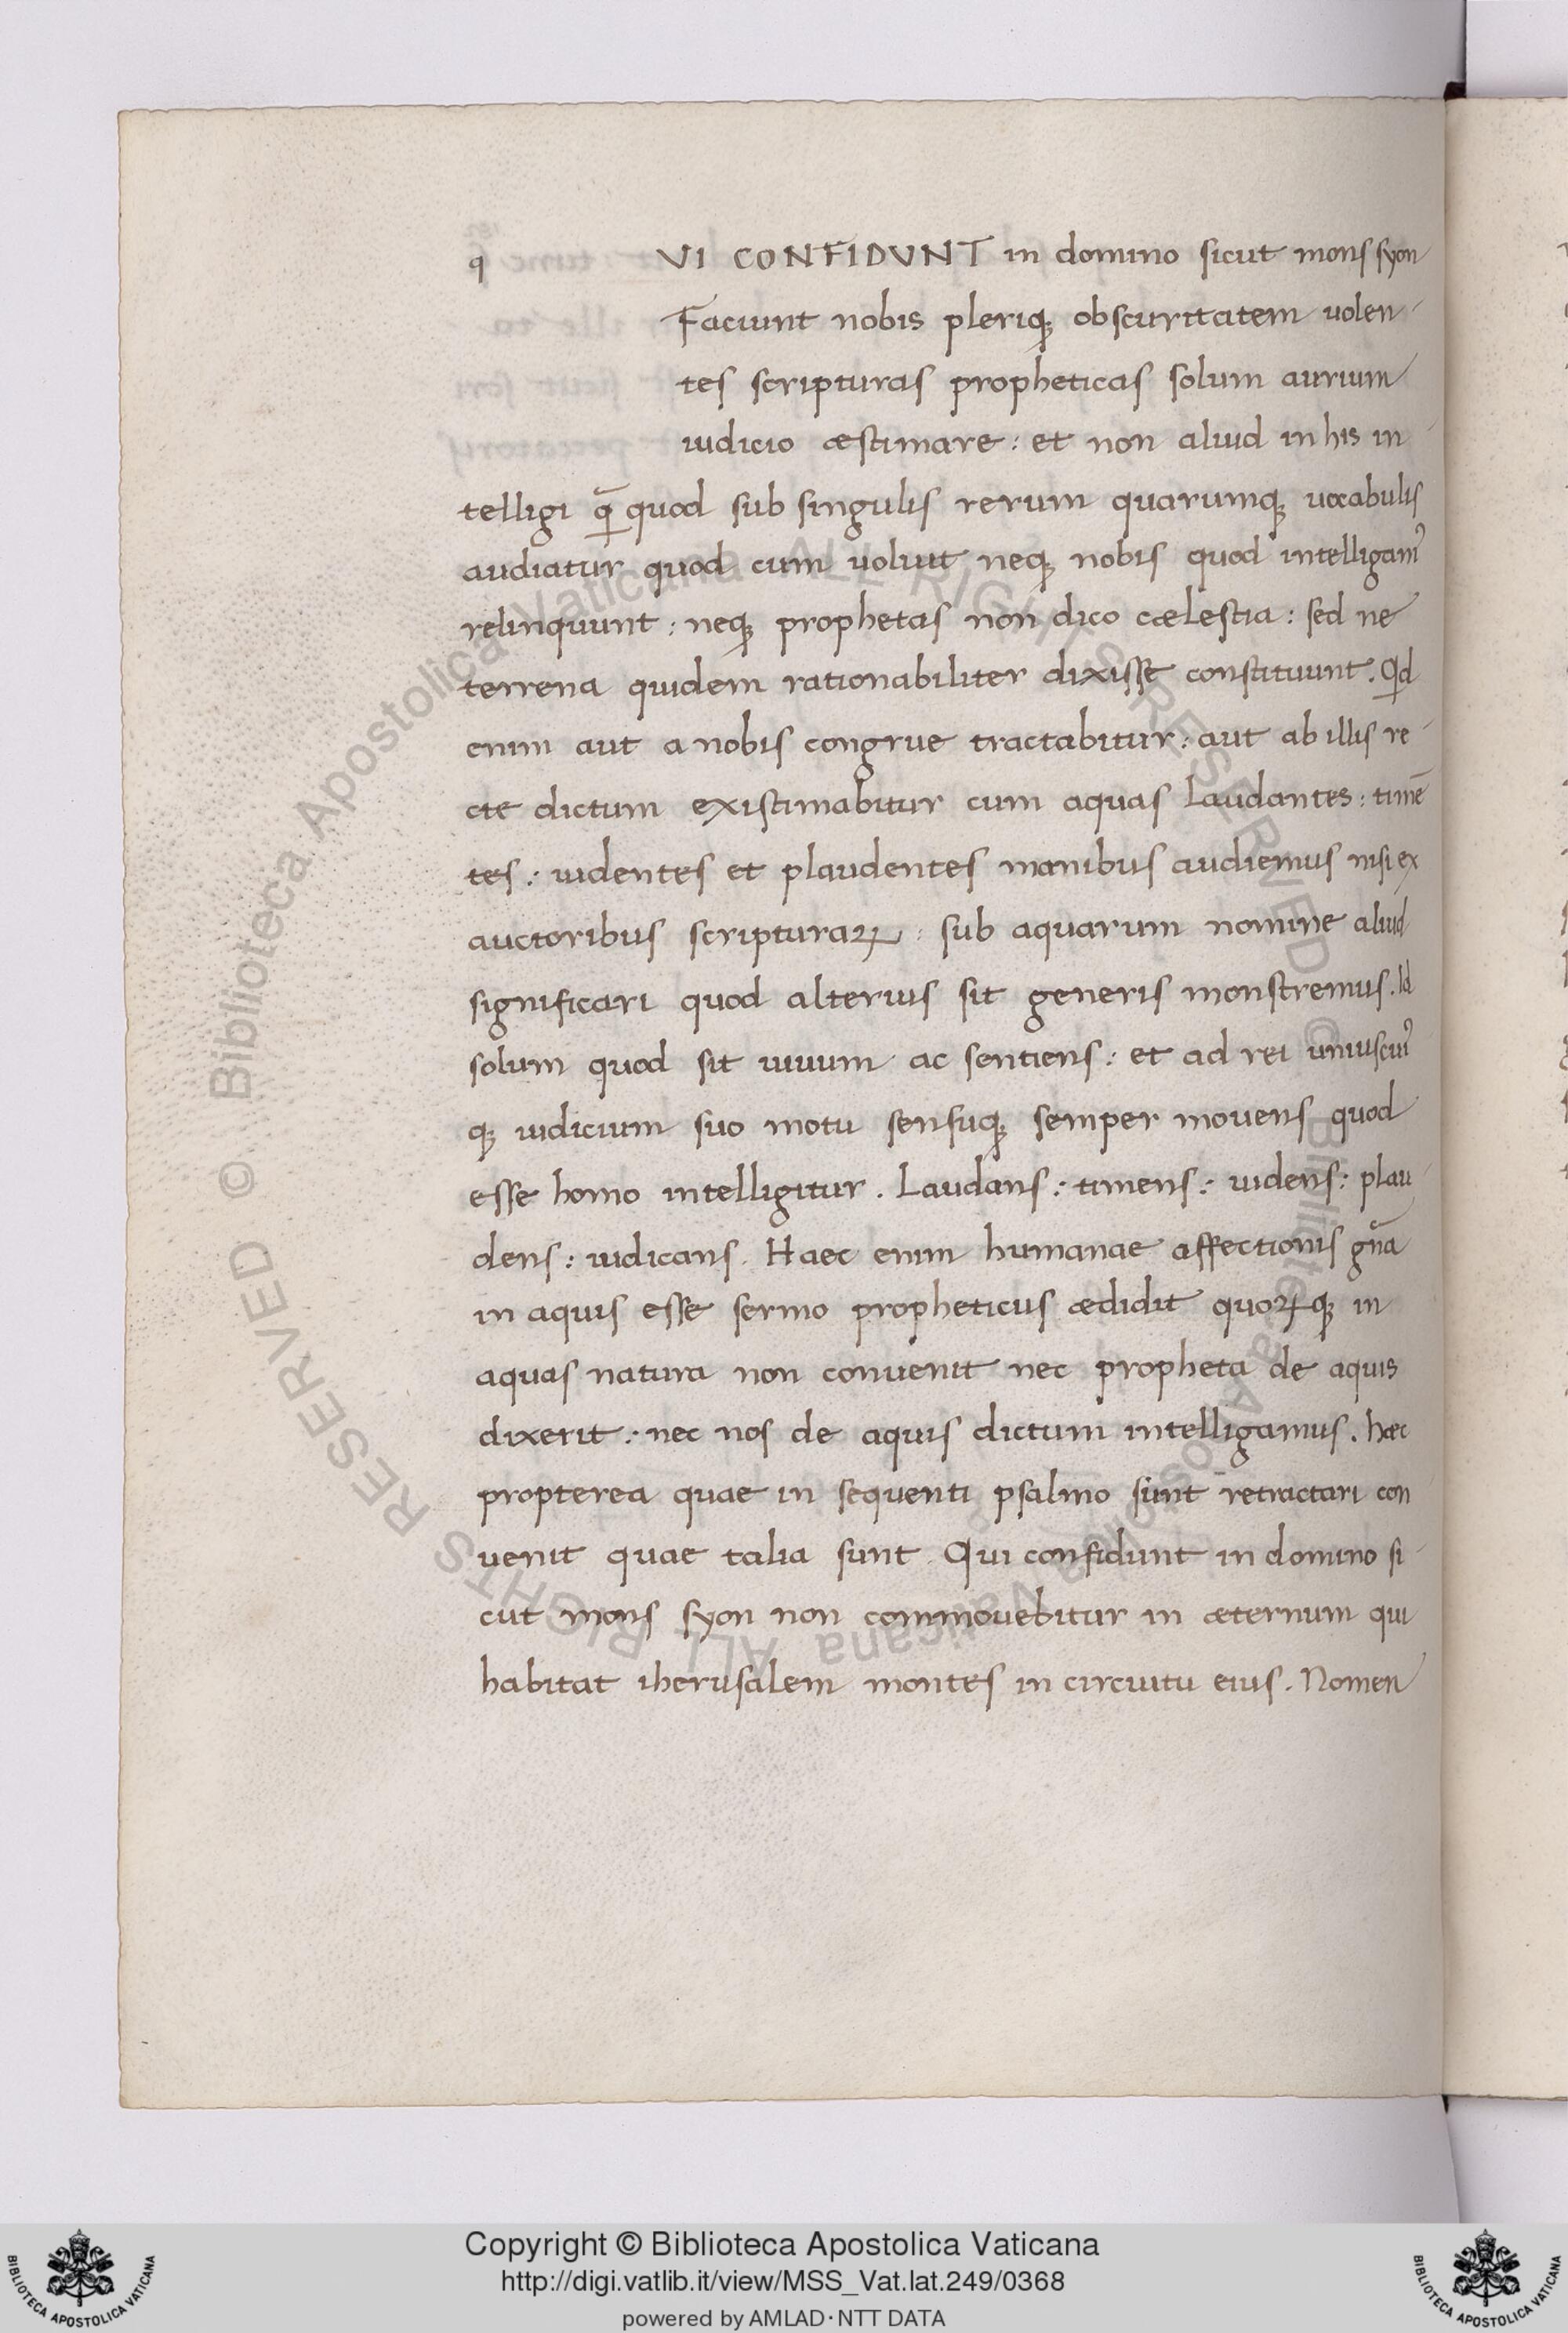 q VI CONFIDVNT in domino sicut mons syon
Faciunt nobis pleriq; obscuritatem uolen
tes scripturas propheticas solum aurium
iudicio æstimare: et non aliud in his in
telligi q̄ quod sub singulis rerum quarumq; uocabulis
audiatur quod cum uolunt neq; nobis quod intelligamꝰ
relinquunt: neq; prophetas non dico cælestia: sed ne
terrena quidem rationabiliter dixisse constituunt. Qd
enim aut a nobis congrue tractabitur: aut ab illis re
cte dictum existimabitur cum aquas laudantes: timē
tes: uidentes et plaudentes manibus audiemus nisi ex
auctoribus scripturaꝝ: sub aquarum nomine aliud
significari quod alterius sit generis monstremus. Id
solum quod sit uiuum ac sentiens: et ad rei uniuscuiꝰ
q; iudicium suo motu sensuq; semper mouens quod
esse homo intelligitur. Laudans: timens: uidens: plau
dens: iudicans. Haec enim humanae affectionis gn̄a
in aquis esse sermo propheticus ædidit quoꝝq; in
aquas natura non conuenit nec propheta de aquis
dixerit: nec nos de aquis dictum intelligamus. hæc
propterea quae in sequenti psalmo sunt retractari con
uenit quae talia sunt. Qui confidunt in domino si
cut mons syon non commouebitur in æternum qui
habitat iherusalem montes in circuitu eius. Nomen
© Biblioteca Apostolica Vaticana ALL RIGHTS RESERVED © Biblioteca Apostolica Vaticana ALL RIGHTS RESERVED
Copyright © Biblioteca Apostolica Vaticana
http://digi.vatlib.it/view/MSS_Vat.lat.249/0368
powered by AMLAD·NTT DATA
BIBLIOTECA APOSTOLICA VATICANA
BIBLIOTECA APOSTOLICA VATICANA